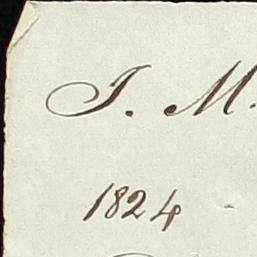 J. M.
1824